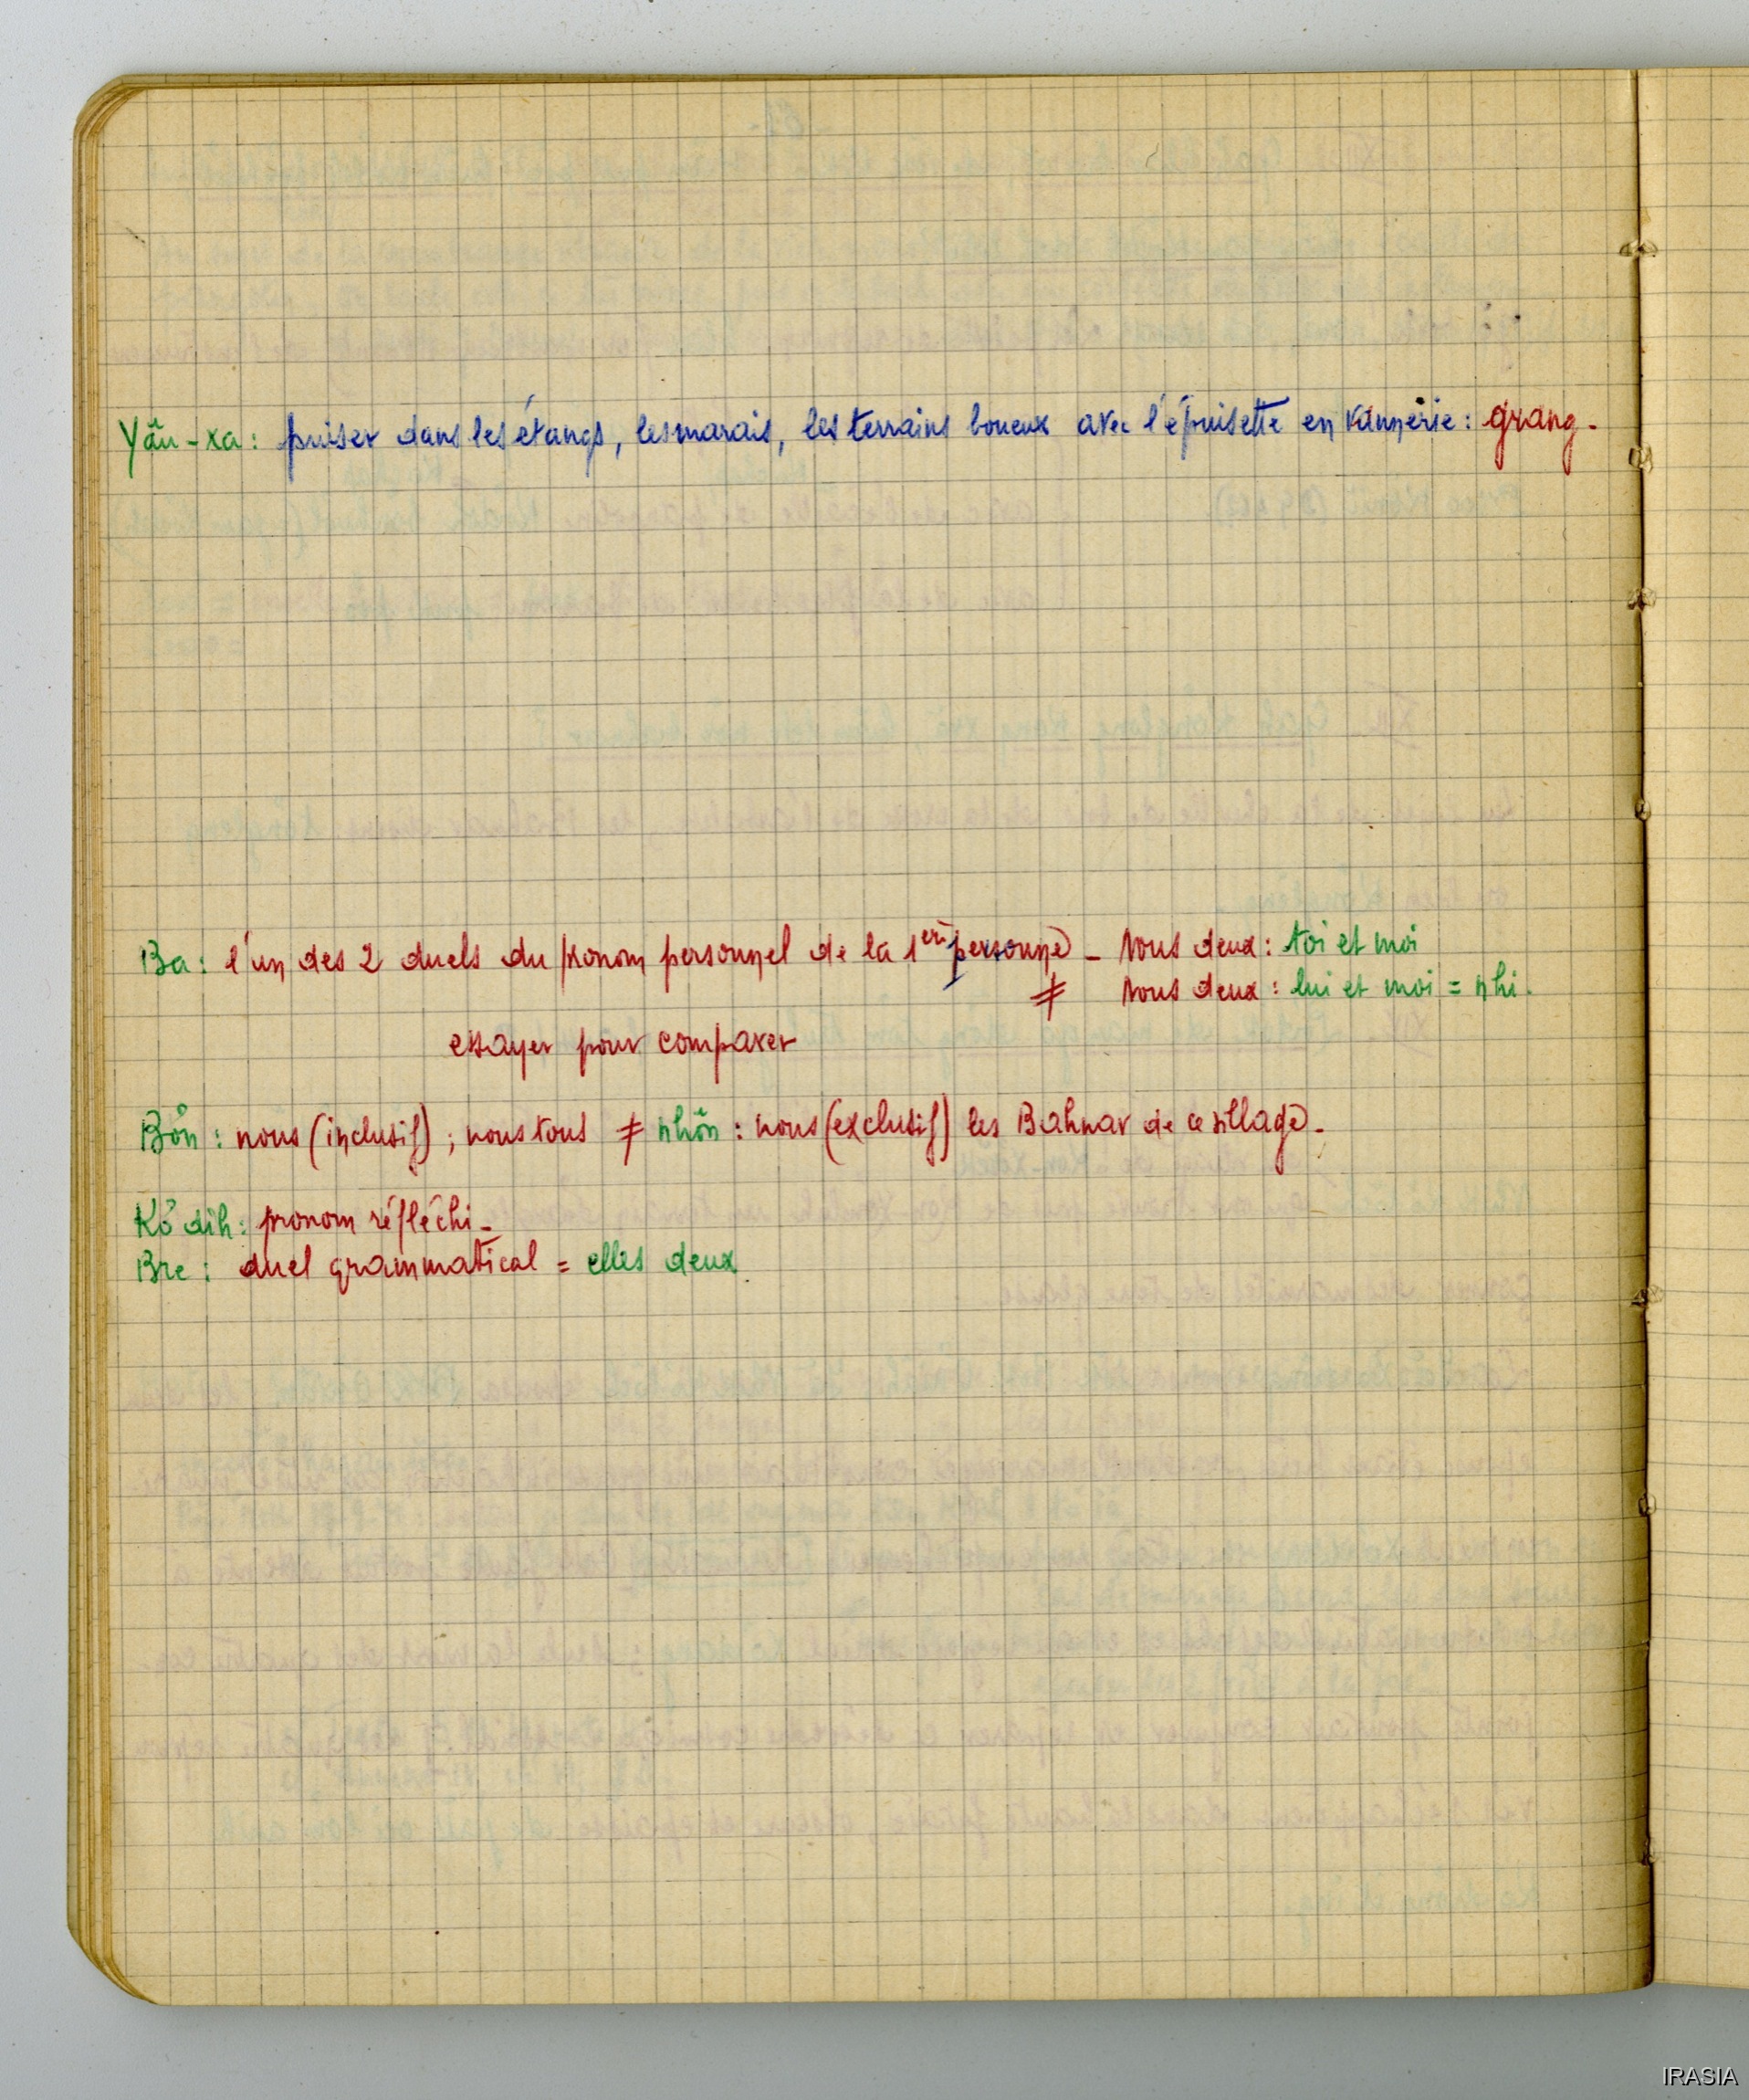 Yâu-xa: puiser dans les étangs, les marais, les terrains boueux avec l'épuisette en vannerie: grang.
Ba: l'un des 2 duels du pronom personnel de la 1ère personne - Nous deux: toi et moi
≠ Nous deux: lui et moi = nhi.
essayer pour comparer
Bơ̆n: nous (inclusif); nous tous ≠ nhôn: nous (exclusif) les Bahnar de ce village.
Kơ̆ dih: pronom réfléchi -
Bre: duel grammatical = elles deux.
IRASIA